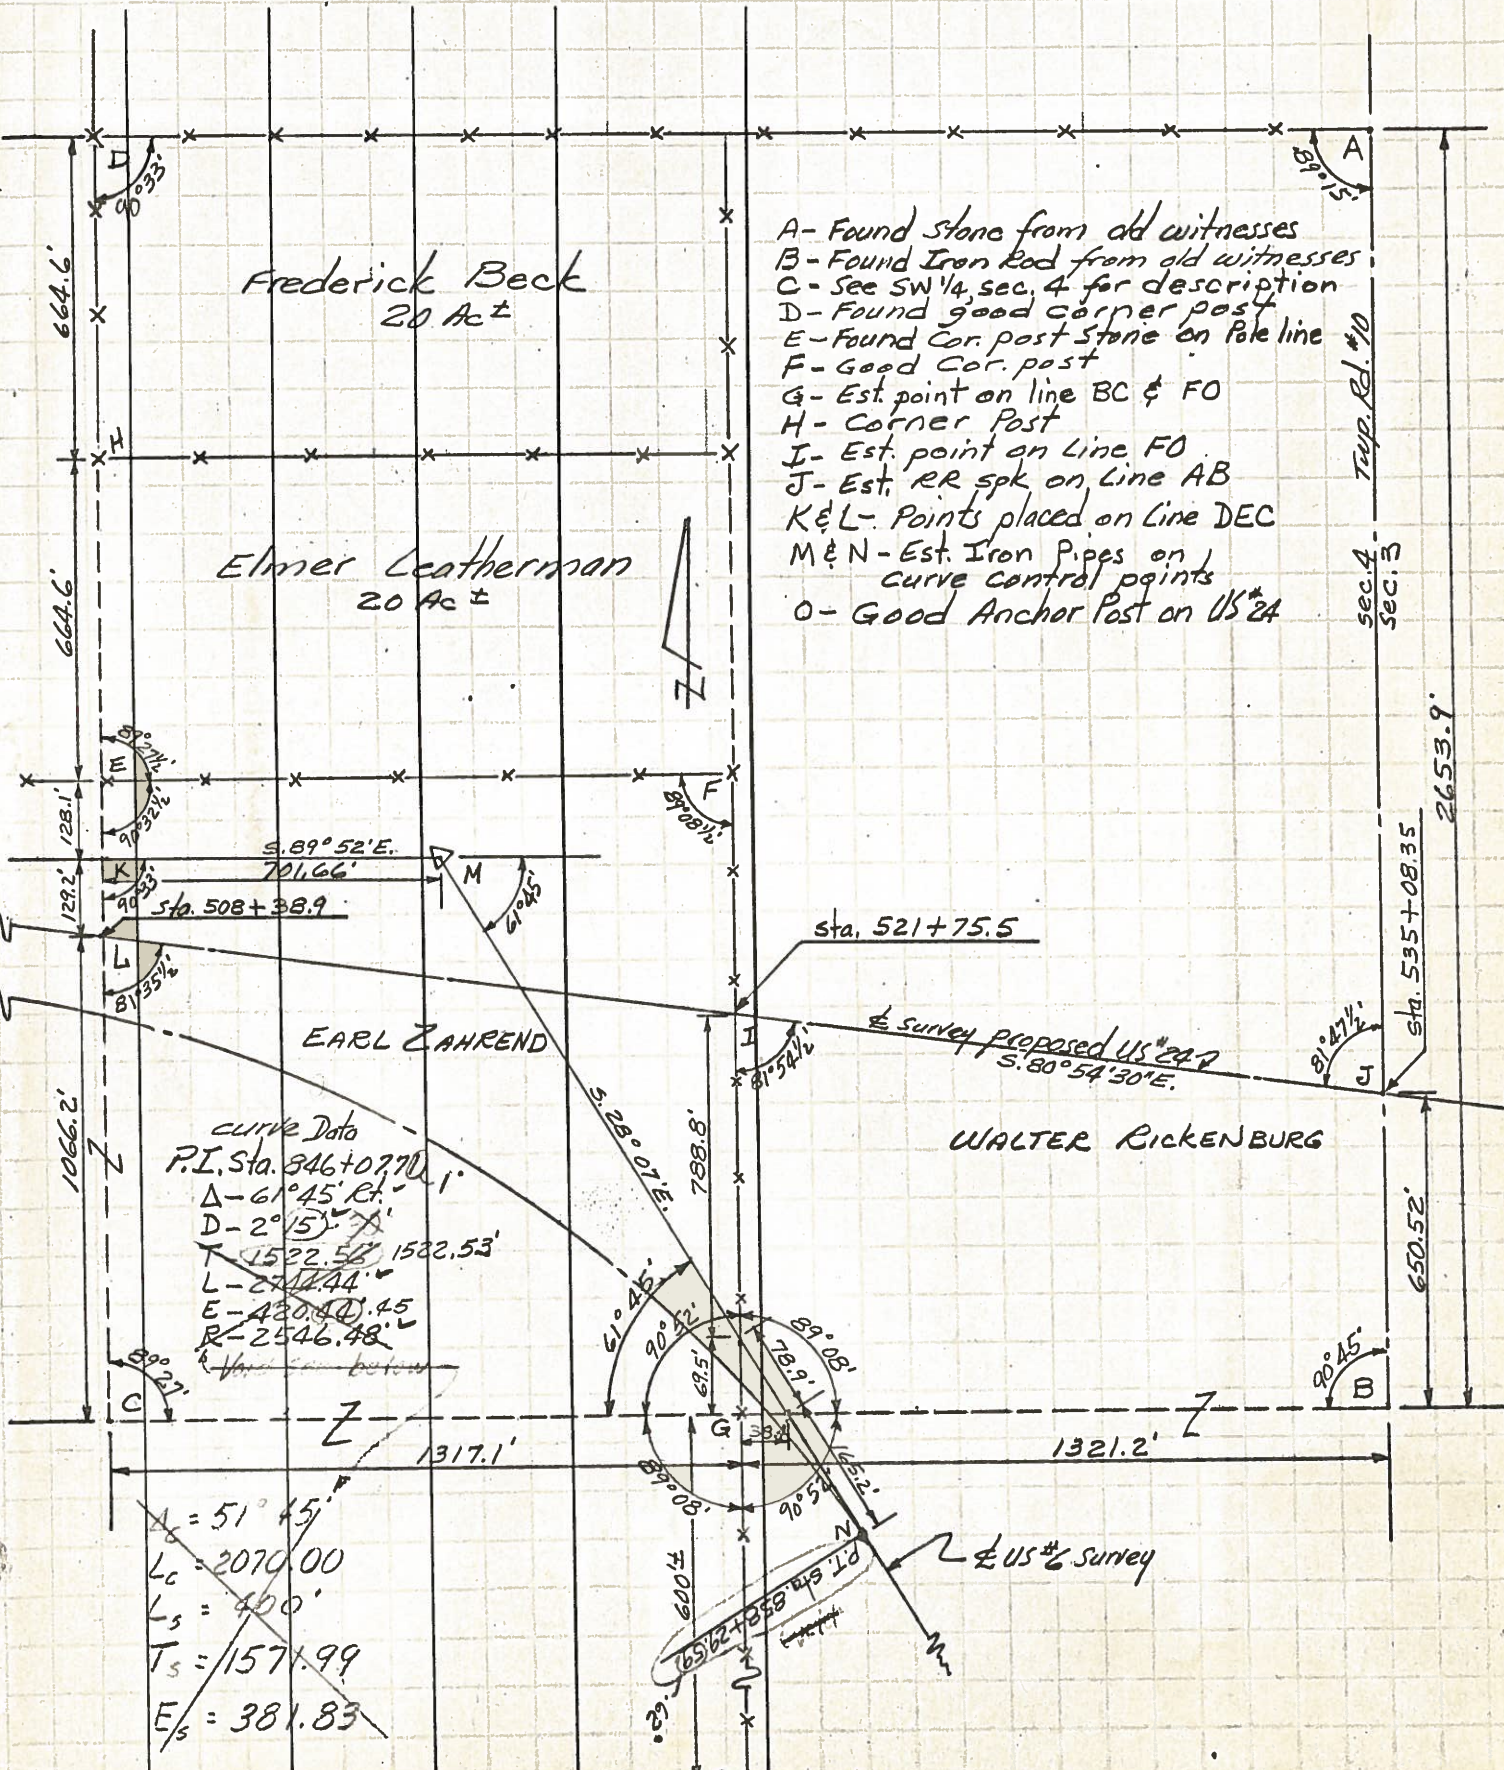 D
90°33'
A
89°15'
664.6'
Frederick Beck
20 Ac ±
A- Found Stone from old witnesses
B- Found Iron Rod from old witnesses
C- See SW 1/4, sec. 4 for description
D- Found good corner post
E- Found Cor. post Stone on Pole line
F- Good Cor. post
G- Est. point on line BC & FO
H- Corner Post
I- Est. point on Line FO
J- Est. RR spk on Line AB
K & L- Points placed on Line DEC
M & N- Est. Iron Pipes on
curve control points
O- Good Anchor Post on US #24
Twp. Rd. #10
sec. 4
sec. 3
H
664.6'
Elmer Leatherman
20 Ac ±
2653.9'
E
89°27½'
90°32½'
F
89°08½'
128.1'
S.89°52'E.
701.66'
M
61°45'
K
90°33'
129.2'
sta. 508+38.9
L
81°35½'
sta. 521+75.5
sta. 535+08.35
EARL ZAHREND
I
81°54½'
₵ survey proposed US #24
S.80°54'30"E.
81°47½'
J
WALTER RICKENBURG
S.28°07'E.
788.8'
1066.2'
650.52'
curve Data
P.I. Sta. 846+07.70
Δ- 61°45' Rt.
D- 2°15' 30'
T- 1522.56 1522.53'
L- 2744.44'
E- 420.44' .45
R- 2546.48'
below
61°45'
90°52'
89°08'
69.5'
78.9'
89°27'
C
G
38.4
90°45'
B
1317.1'
1321.2'
89°08'
90°52'
165.2'
N
600'±
P.T. sta. 858+29.59
.62
₵ US #6 Survey
Δc = 51° 45'
Lc = 2070.00
Ls = 400'
Ts = 1571.99
Es = 381.83